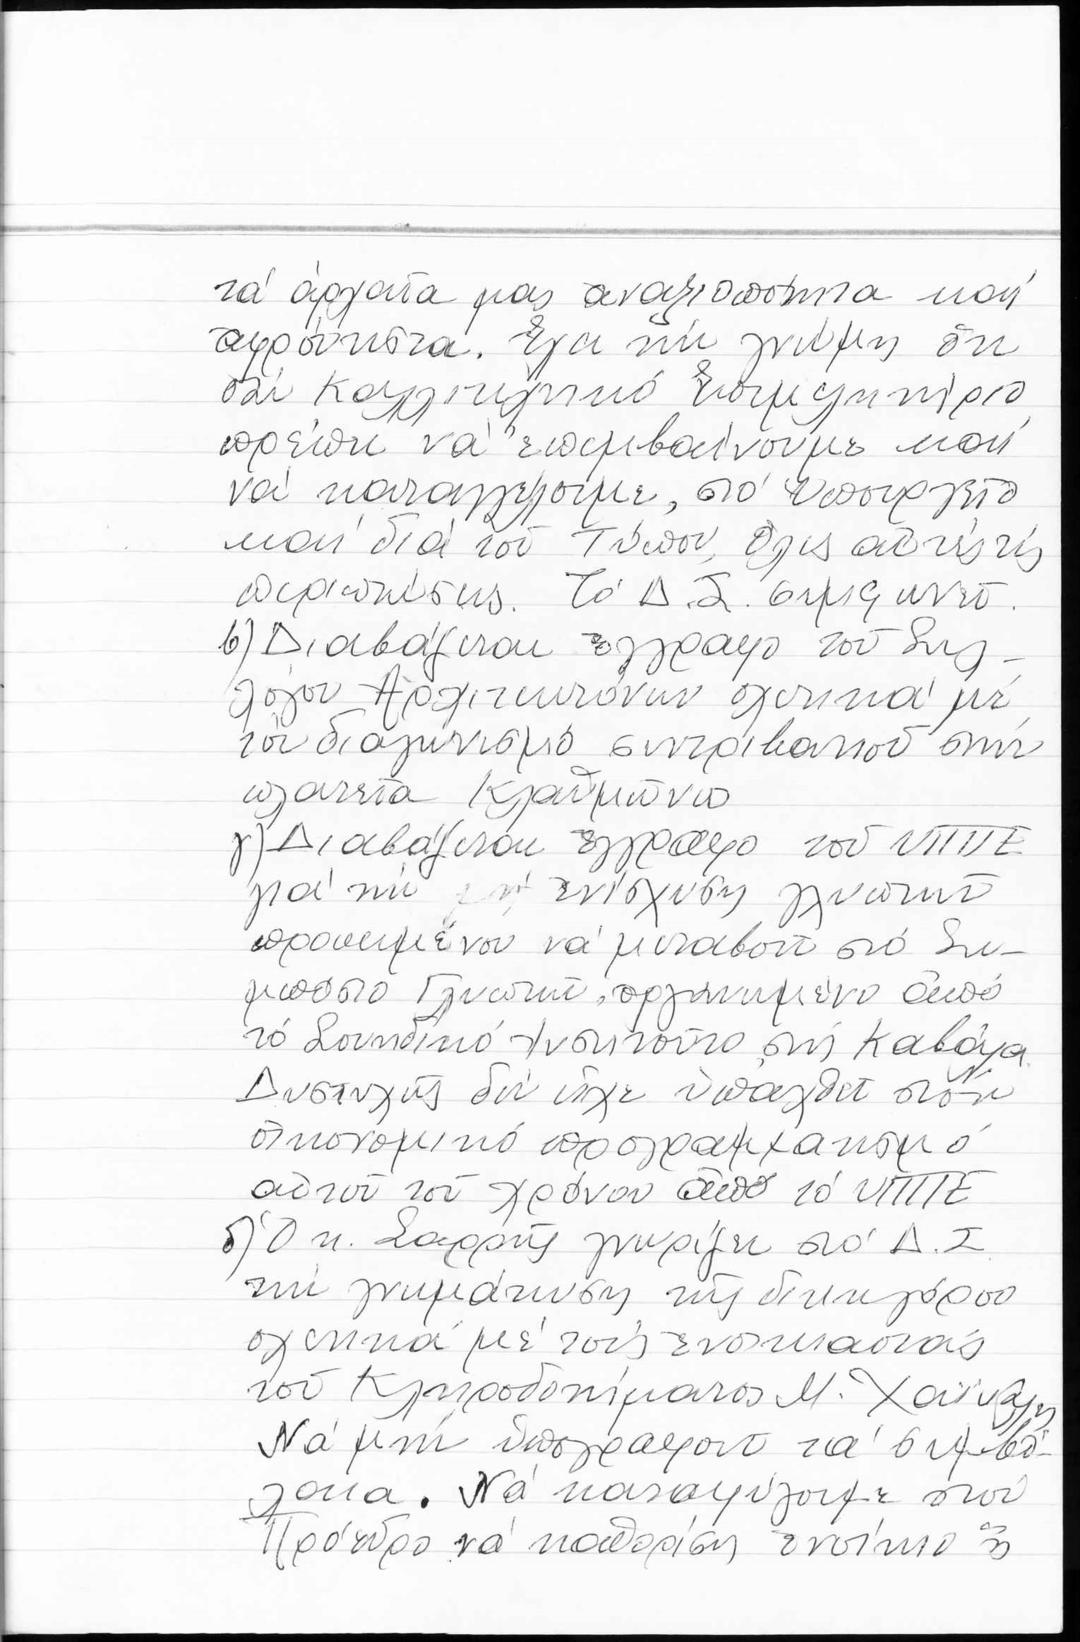 τά ἀρχαῖα μας ἀναξιοποίητα καί
ἀφρόντιστα. Ἔχει τήν γνώμη ὅτι
σάν Καλλιτεχνικό Ἐπιμελητήριο
πρέπει νά ἐπεμβαίνουμε καί
νά καταγγέλουμε, στό Ὑπουργεῖο
καί διά τοῦ Τύπου, ὅλες αὐτές τίς
περιπτώσεις. Τό Δ.Σ. συμφωνεῖ.
β) Διαβάζεται ἔγγραφο τοῦ Συλ-
λόγου Ἀρχιτεκτόνων σχετικά μέ
τόν διαγωνισμό συντριβανιοῦ στήν
πλατεῖα Κλαυθμῶνος
γ) Διαβάζεται ἔγγραφο τοῦ ΥΠΠΕ
γιά τήν ἐνίσχυση γλυπτῶν
προκειμένου νά μεταβοῦν στό Συ-
μπόσιο Γλυπτῶν, ὀργανωμένο ἀπό
τό Σουηδικό Ἰνστιτοῦτο στή Καβάλα.
Δυστυχῶς δέν εἶχε ὑπαχθεῖ στόν
οἰκονομικό προγραμματισμό
αὐτοῦ τοῦ χρόνου ἀπό τό ΥΠΠΕ
δ) Ὁ κ. Σαρρῆς γνωρίζει στό Δ.Σ.
τήν γνωμάτευση τῆς δικηγόρου
σχετικά μέ τούς ἐνοικιαστάς
τοῦ Κληροδοτήματος Μ.
Νά μήν ὑπογραφοῦν τά συμβό-
λαια. Νά καταφύγουμε στόν
Πρόεδρο νά καθορίση ἐνοίκιο